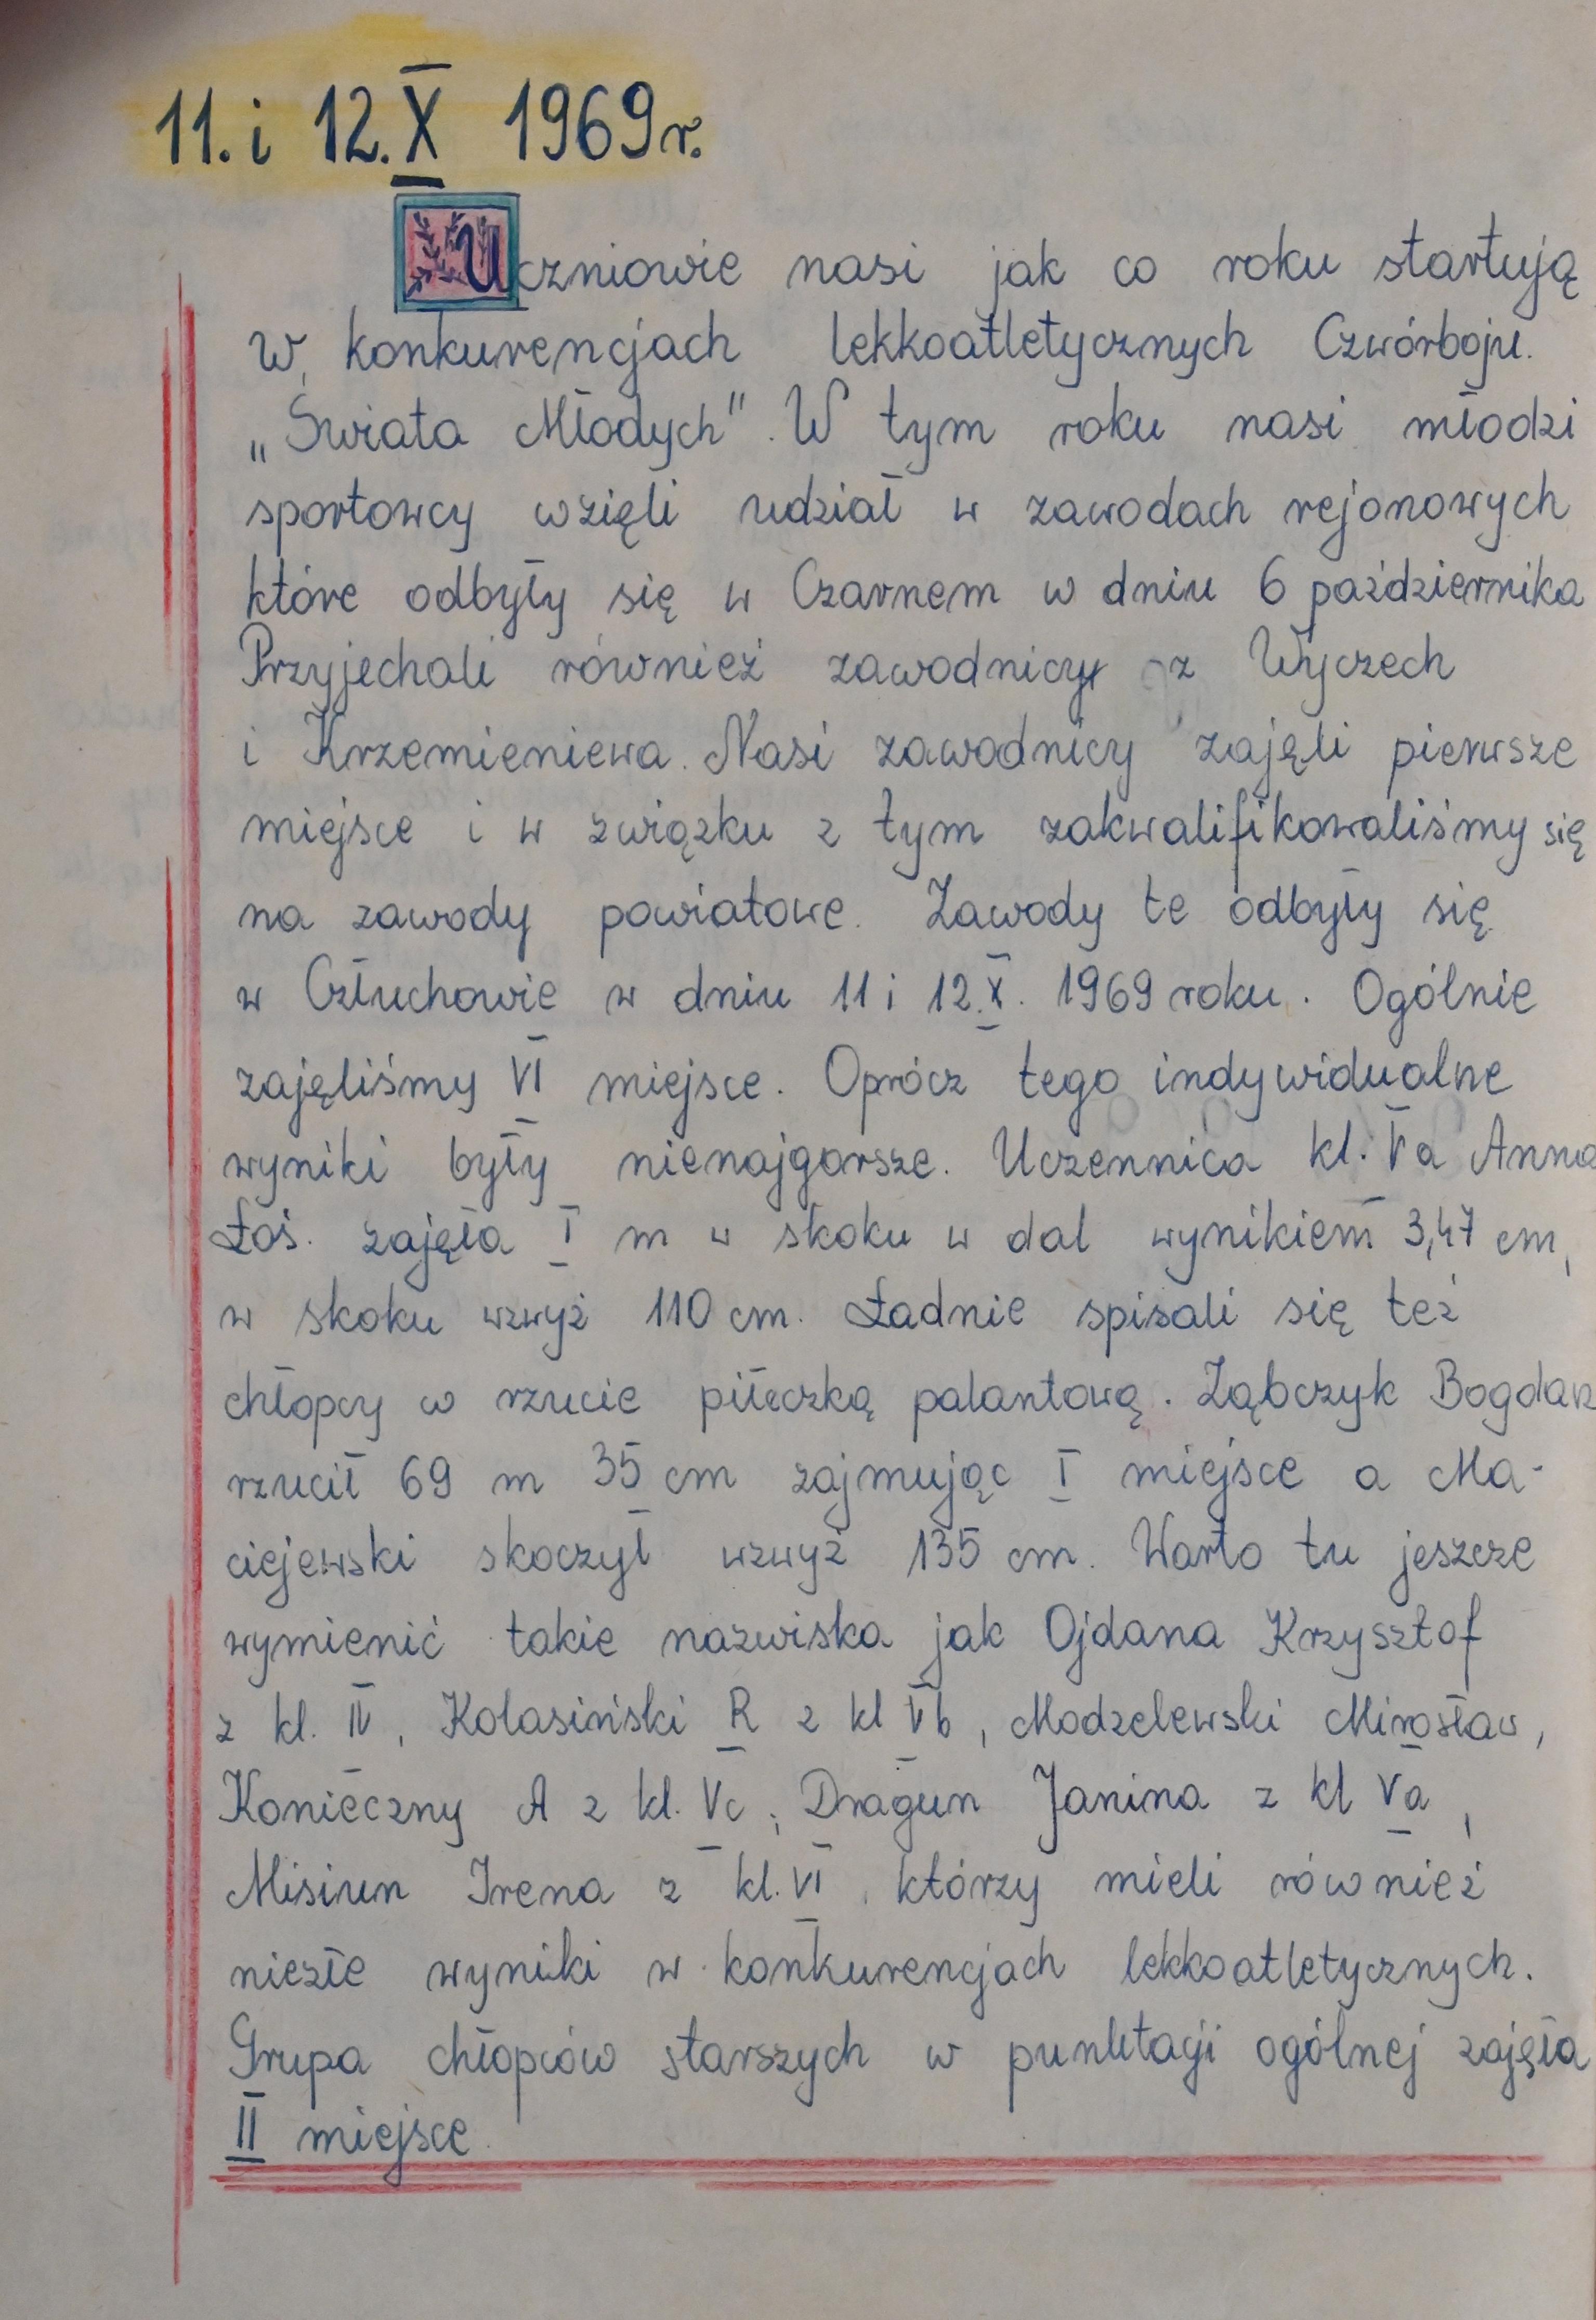 11. i 12. X 1969 r.
Uczniowie nasi jak co roku startują
w konkurencjach lekkoatletycznych Czwórboju.
„Świata Młodych". W tym roku nasi młodzi
sportowcy wzięli udział w zawodach rejonowych
które odbyły się w Czarnem w dniu 6 października
Przyjechali również zawodnicy z Wyczech
i Krzemieniewa. Nasi zawodnicy zajęli pierwsze
miejsce i w związku z tym zakwalifikowaliśmy się
na zawody powiatowe. Zawody te odbyły się
w Człuchowie w dniu 11 i 12.X. 1969 roku. Ogólnie
zajęliśmy VI miejsce. Oprócz tego indywidualne
wyniki były nienajgorsze. Uczennica kl. Va Anna
Łoś. zajęła I m w skoku w dal wynikiem 3,47 cm,
w skoku wzwyż 110 cm. Ładnie spisali się też
chłopcy w rzucie piłeczką palantową. Ząbczyk Bogdan
rzucił 69 m 35 cm zajmując I miejsce a Ma-
ciejewski skoczył wzwyż 135 cm. Warto tu jeszcze
wymienić takie nazwiska jak Ojdana Krzysztof
z kl. IV, Kolasiński R z kl Vb, Modzelewski Mirosław,
Konieczny A z kl. Vc, Dragun Janina z kl Va,
Misiun Irena z kl. VI, którzy mieli również
niezłe wyniki w konkurencjach lekkoatletycznych.
Grupa chłopców starszych w punktacji ogólnej zajęła
II miejsce.